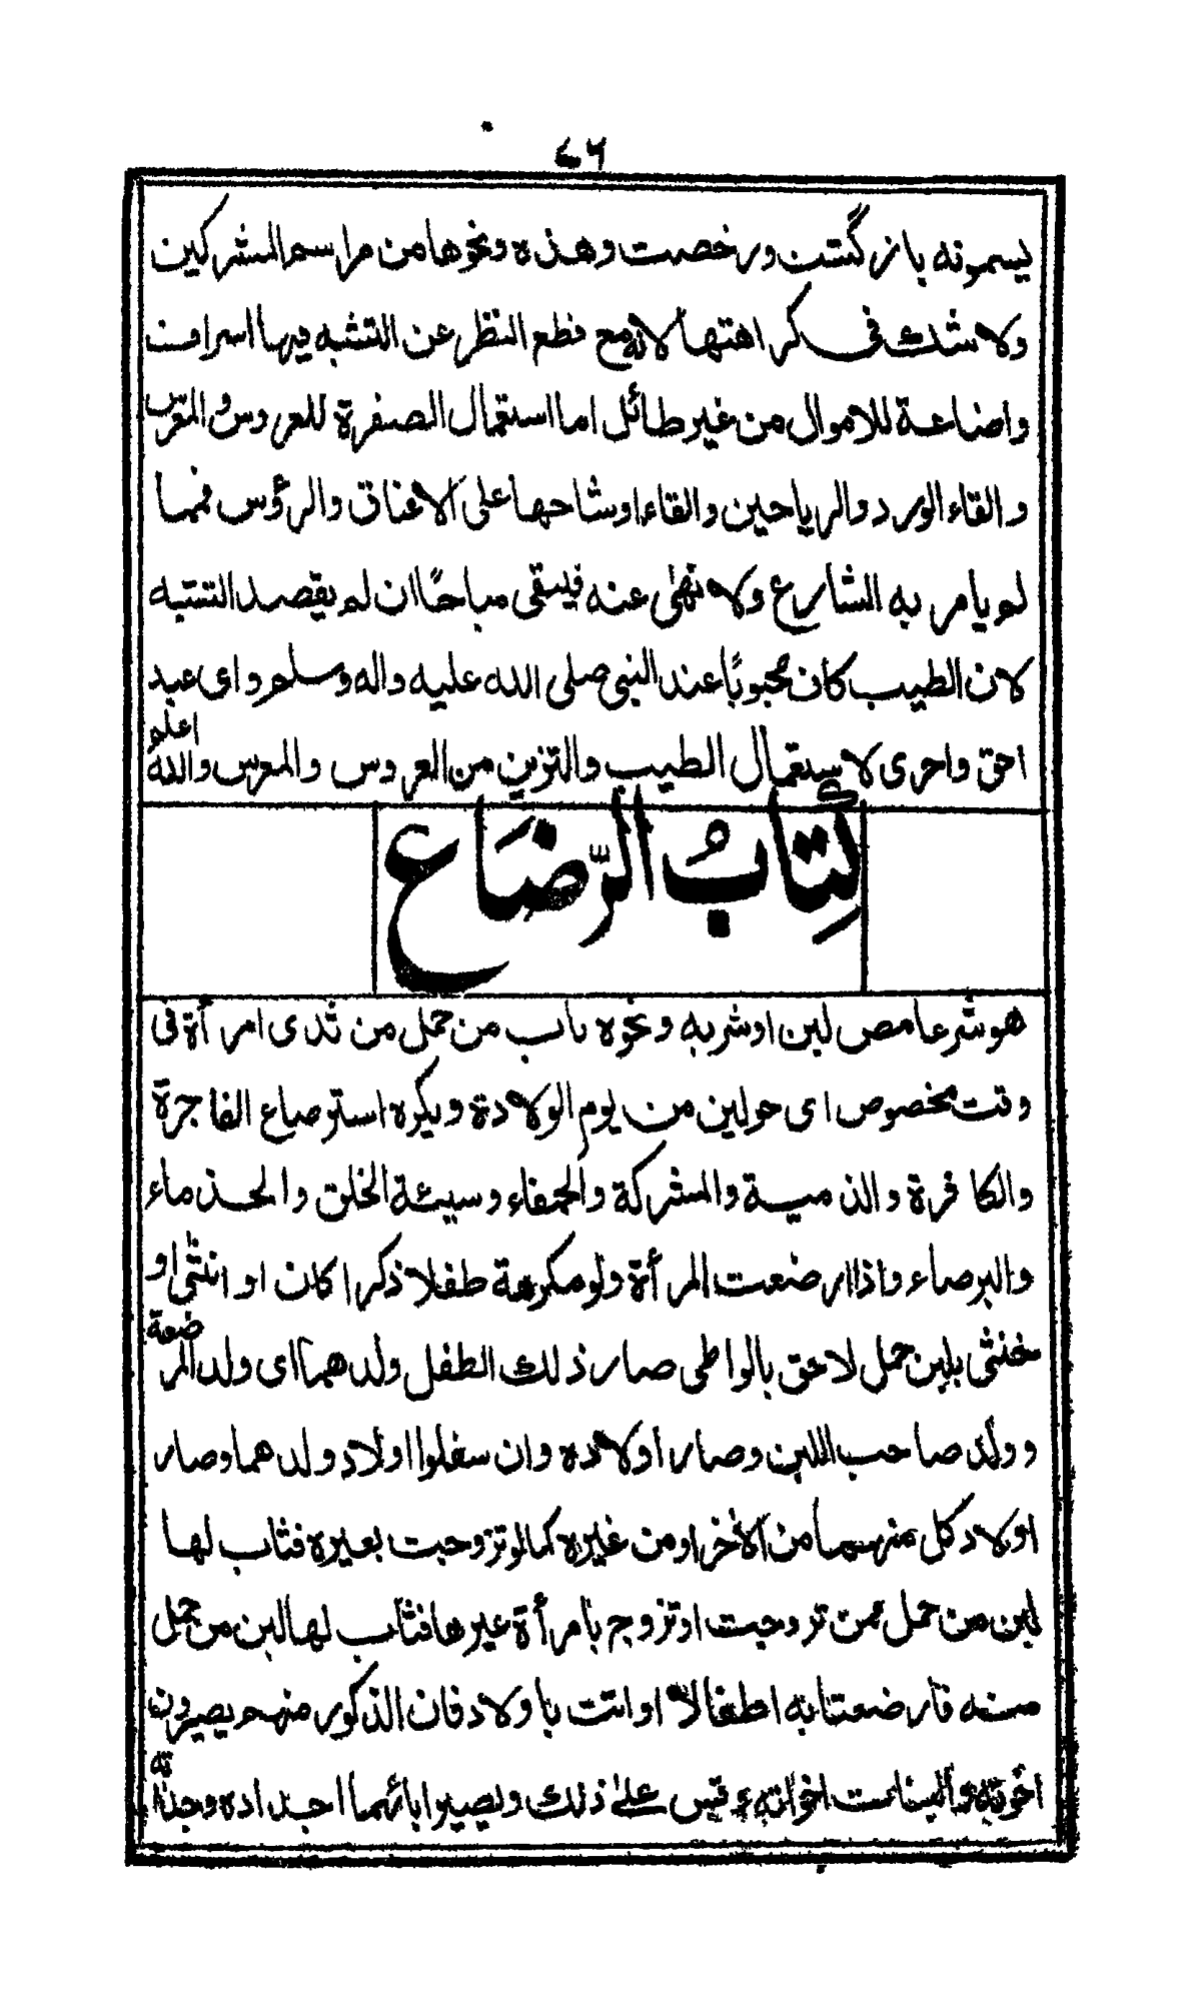 ٧٦
يسمونه بازگشت ورخصت وهذه ونحوها من مراسم المشركين
ولا شك فى كراهتها لانه مع قطع النظر عن التشبه فيها اسراف
واضاعة للاموال من غير طائل اما استعمال الصفرة للعروس والمعرس
والقاء الورد والرياحين والقاء اوشاحها على الاعناق والرؤس فمما
لم يامر به الشارع ولا نهى عنه فيبقى مباحًا ان لم يقصد التشبه
لان الطيب كان محبوبًا عند النبى صلى الله عليه واله وسلم واى عبد
احق واحرى لاستعمال الطيب والتزين من العروس والمعرس والله اعلم
كِتَابُ الرَّضَاع
هو شرعا مص لبن او شربه ونحوه ناب من حمل من ثدى امرأة فى
وقت مخصوص اى حولين من يوم الولادة ويكره استرضاع الفاجرة
والكافرة والذمية والمشركة والحمقاء وسيئة الخلق والجذماء
والبرصاء واذا ارضعت المرأة ولو مكرهة طفلا ذكرا كان او انثى او
خنثى بلبن حمل لاحق بالواطى صار ذلك الطفل ولدهما اى ولد المرضعة
وولد صاحب اللبن وصار اولاده وان سفلوا اولاد ولدهما وصار
اولاد كل منهما من الأخر او من غيره كما لو تزوجت بغيره فثاب لها
لبن من حمل ممن تزوجت او تزوج بامرأة غيرها فثاب لها لبن من حمل
منه فارضعتا به اطفالا او اتت باولاد فان الذكور منهم يصيرون
اخوته والبنات اخواته وقس على ذلك ويصير ابائهما اجداده وجداته